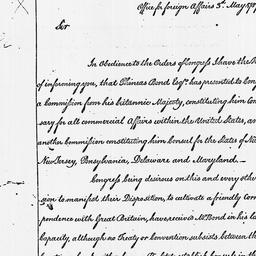 Office for foreign Affairs 3d. May 178
Sir
In Obedience to the Orders of Congress I have the
of informing you, that Phineas Bond Esqr. has presented to Cong
a Commission from his britannic Majesty, constituting him Com
sary for all commercial Affairs within the United States, an
another Commission constituting him Consul for the States of Ne
New Jersey, Pensylvania, Delaware and Maryland.—
Congress being desirous on this and every othe
sion to manifest their Disposition, to cultivate a friendly Corr
pendence with Great Britain, have received Mr. Bond in his la
Capacity, although no Treaty or Convention subsists between th